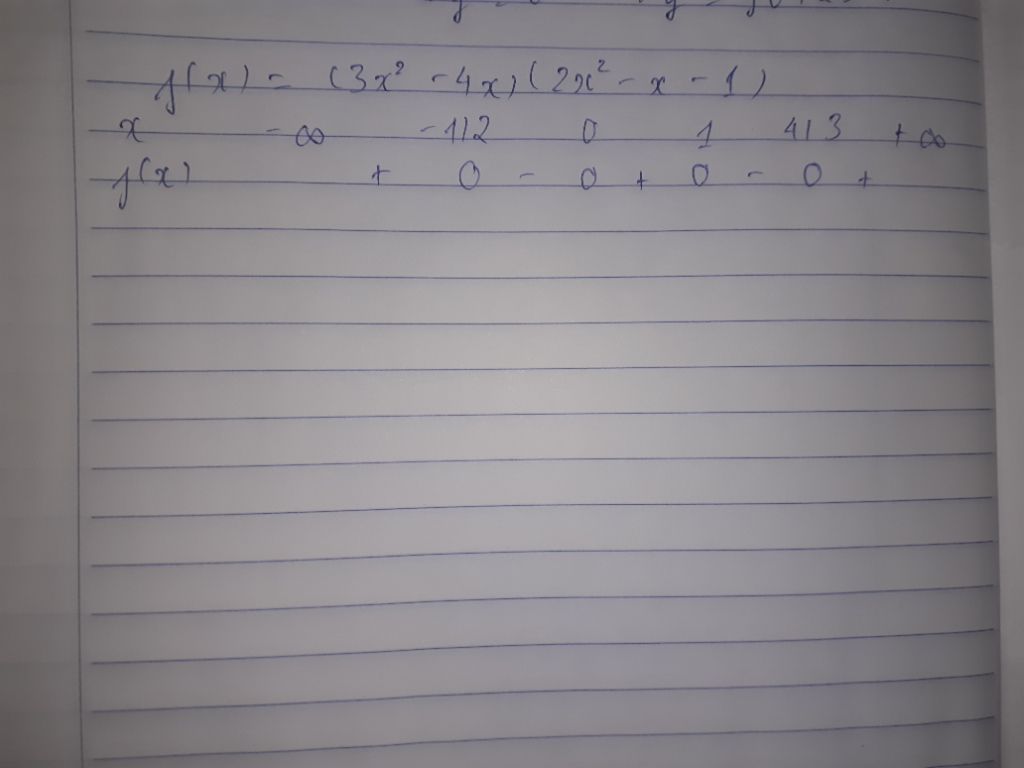 f(x) = (3x² - 4x)(2x² - x - 1)
x -∞ -1/2 0 1 4/3 +∞
f(x) + 0 - 0 + 0 - 0 +